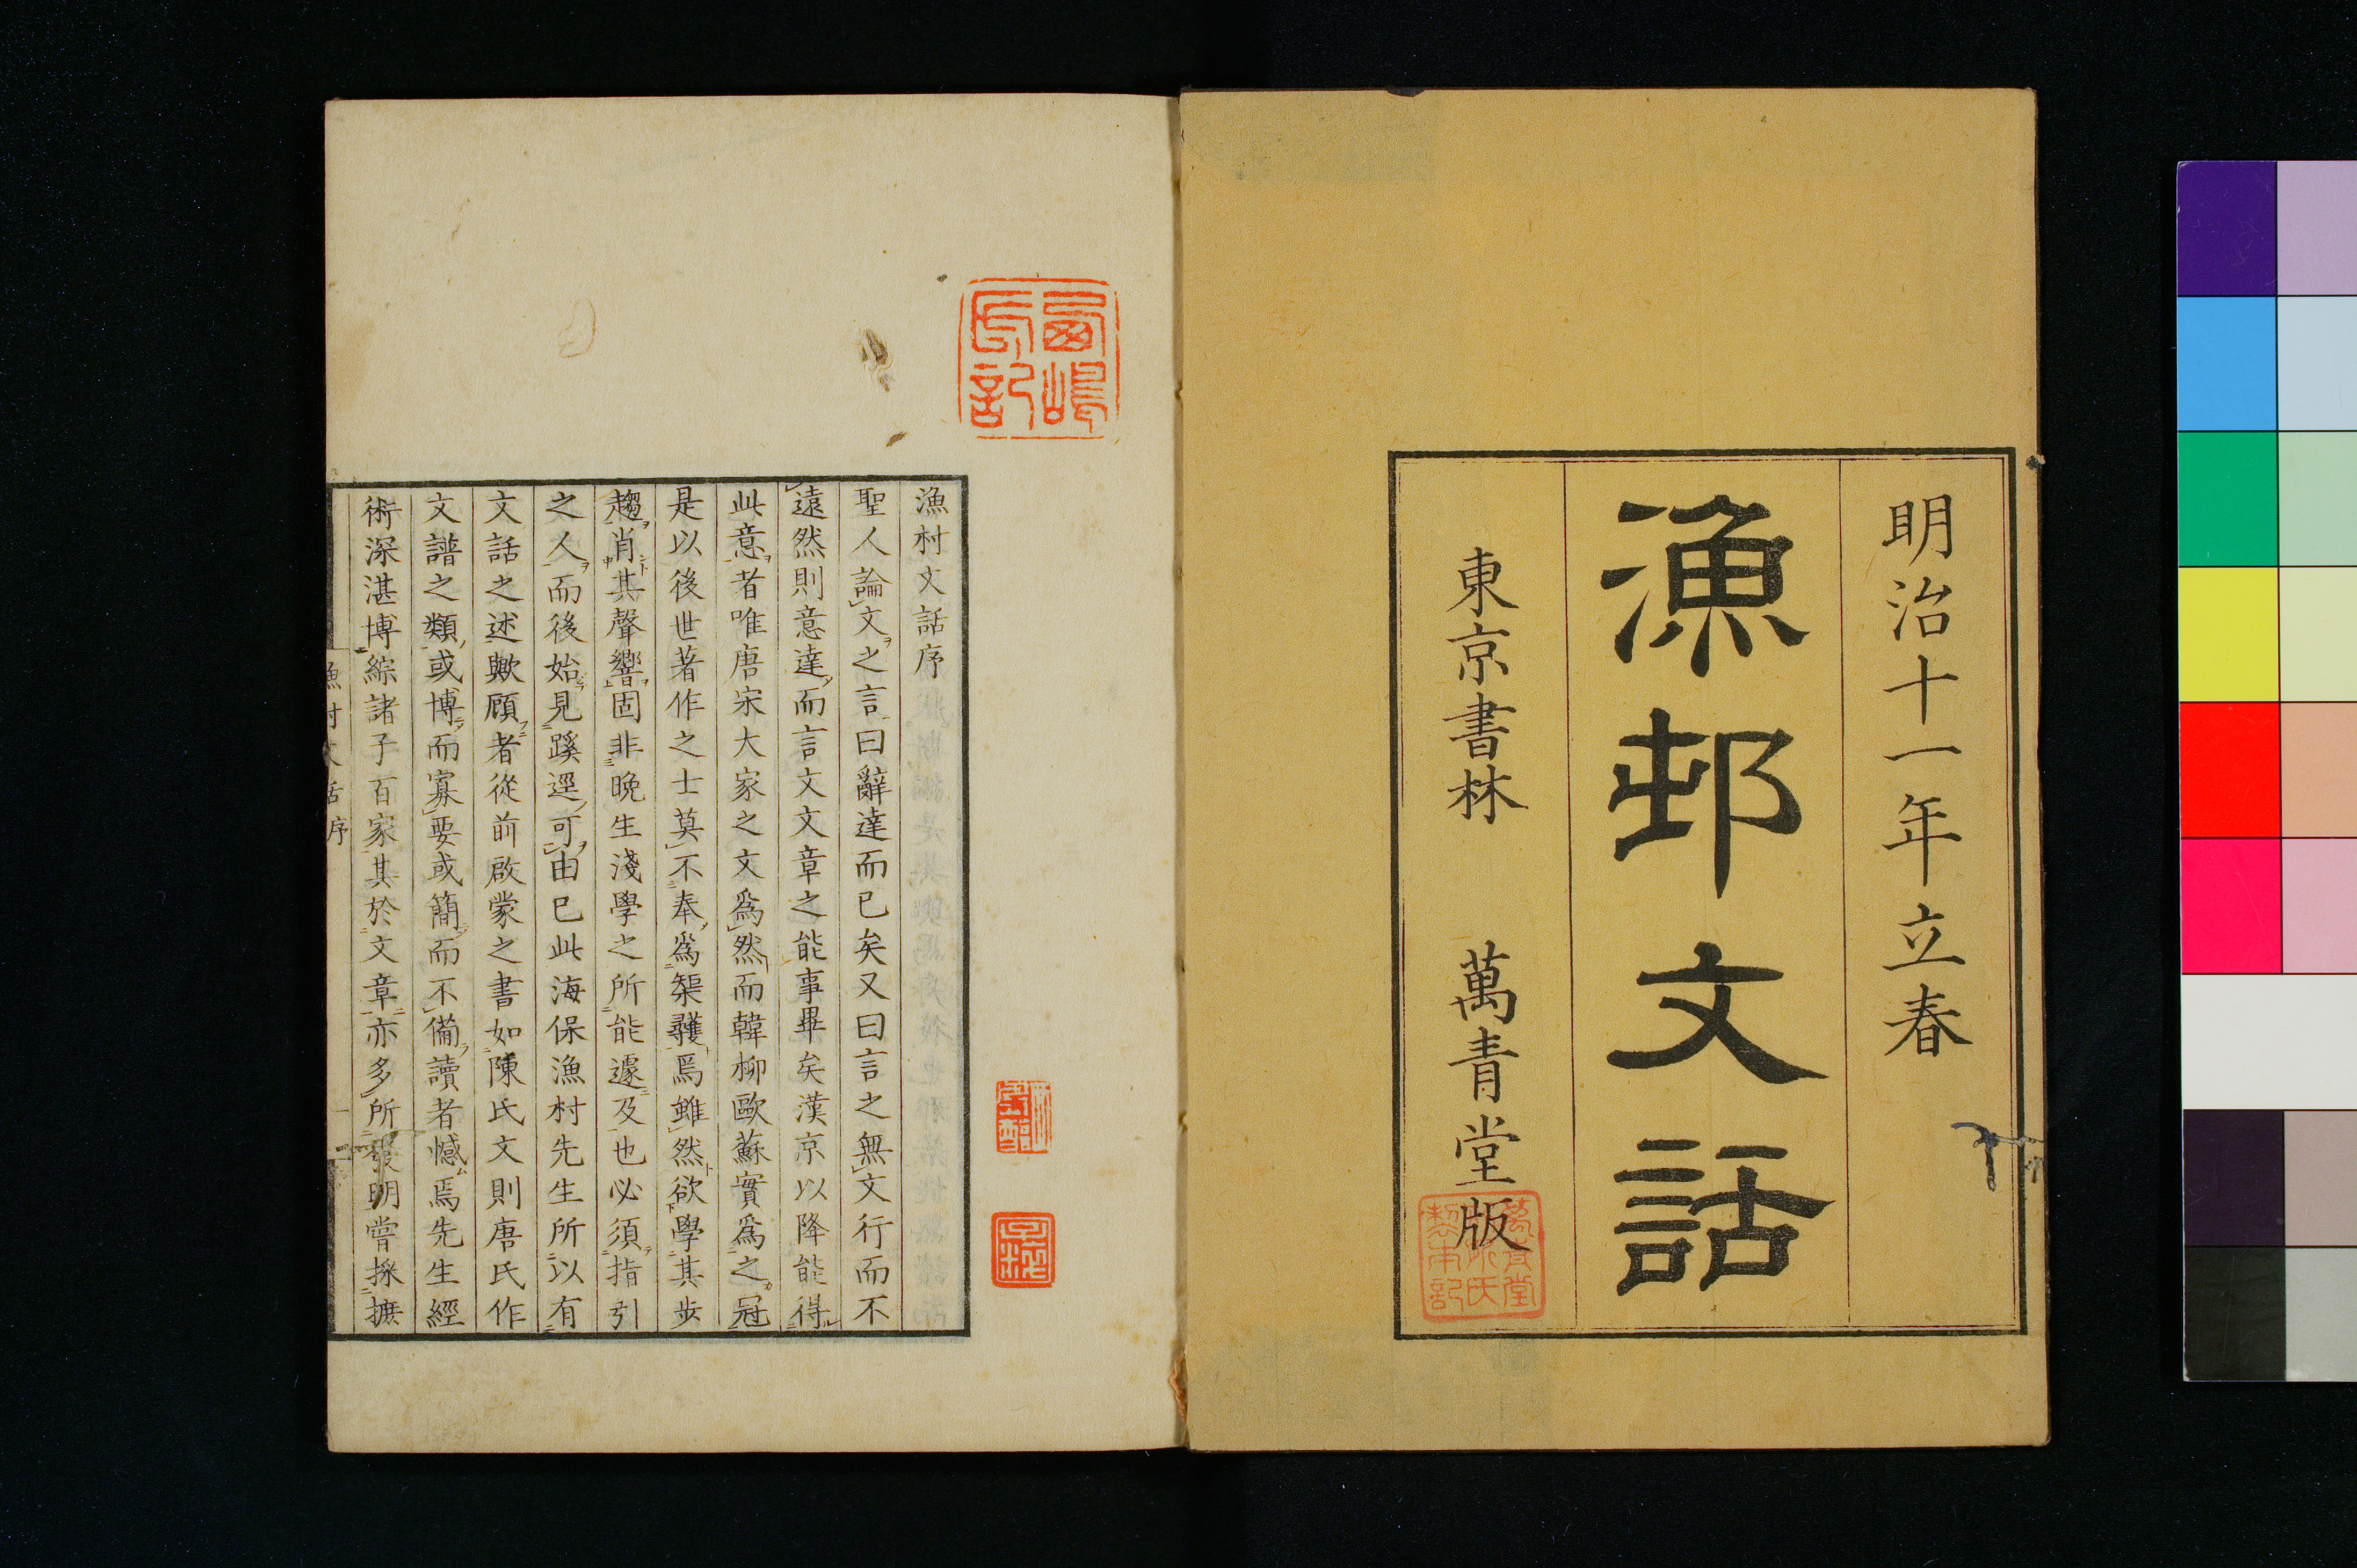 明治十一年立春
漁邨文話
東京書林 萬青堂版
漁村文話序
聖人論文之言曰辭達而已矣又曰言之無文行而不
遠然則意達而言文文章之能事畢矣漢京以降能得
此意者唯唐宋大家之文爲然而韓柳歐蘇實爲之冠
是以後世著作之士莫不奉爲榘彠焉雖然欲學其步
趨肖其聲響固非晩生淺學之所能遽及也必須指引
之人而後始見蹊逕可由已此海保漁村先生所以有
文話之述歟顧者從前啟蒙之書如陳氏文則唐氏作
文譜之類或博而寡要或簡而不備讀者憾焉先生經
術深湛博綜諸子百家其於文章亦多所發明嘗採摭
漁村文話序